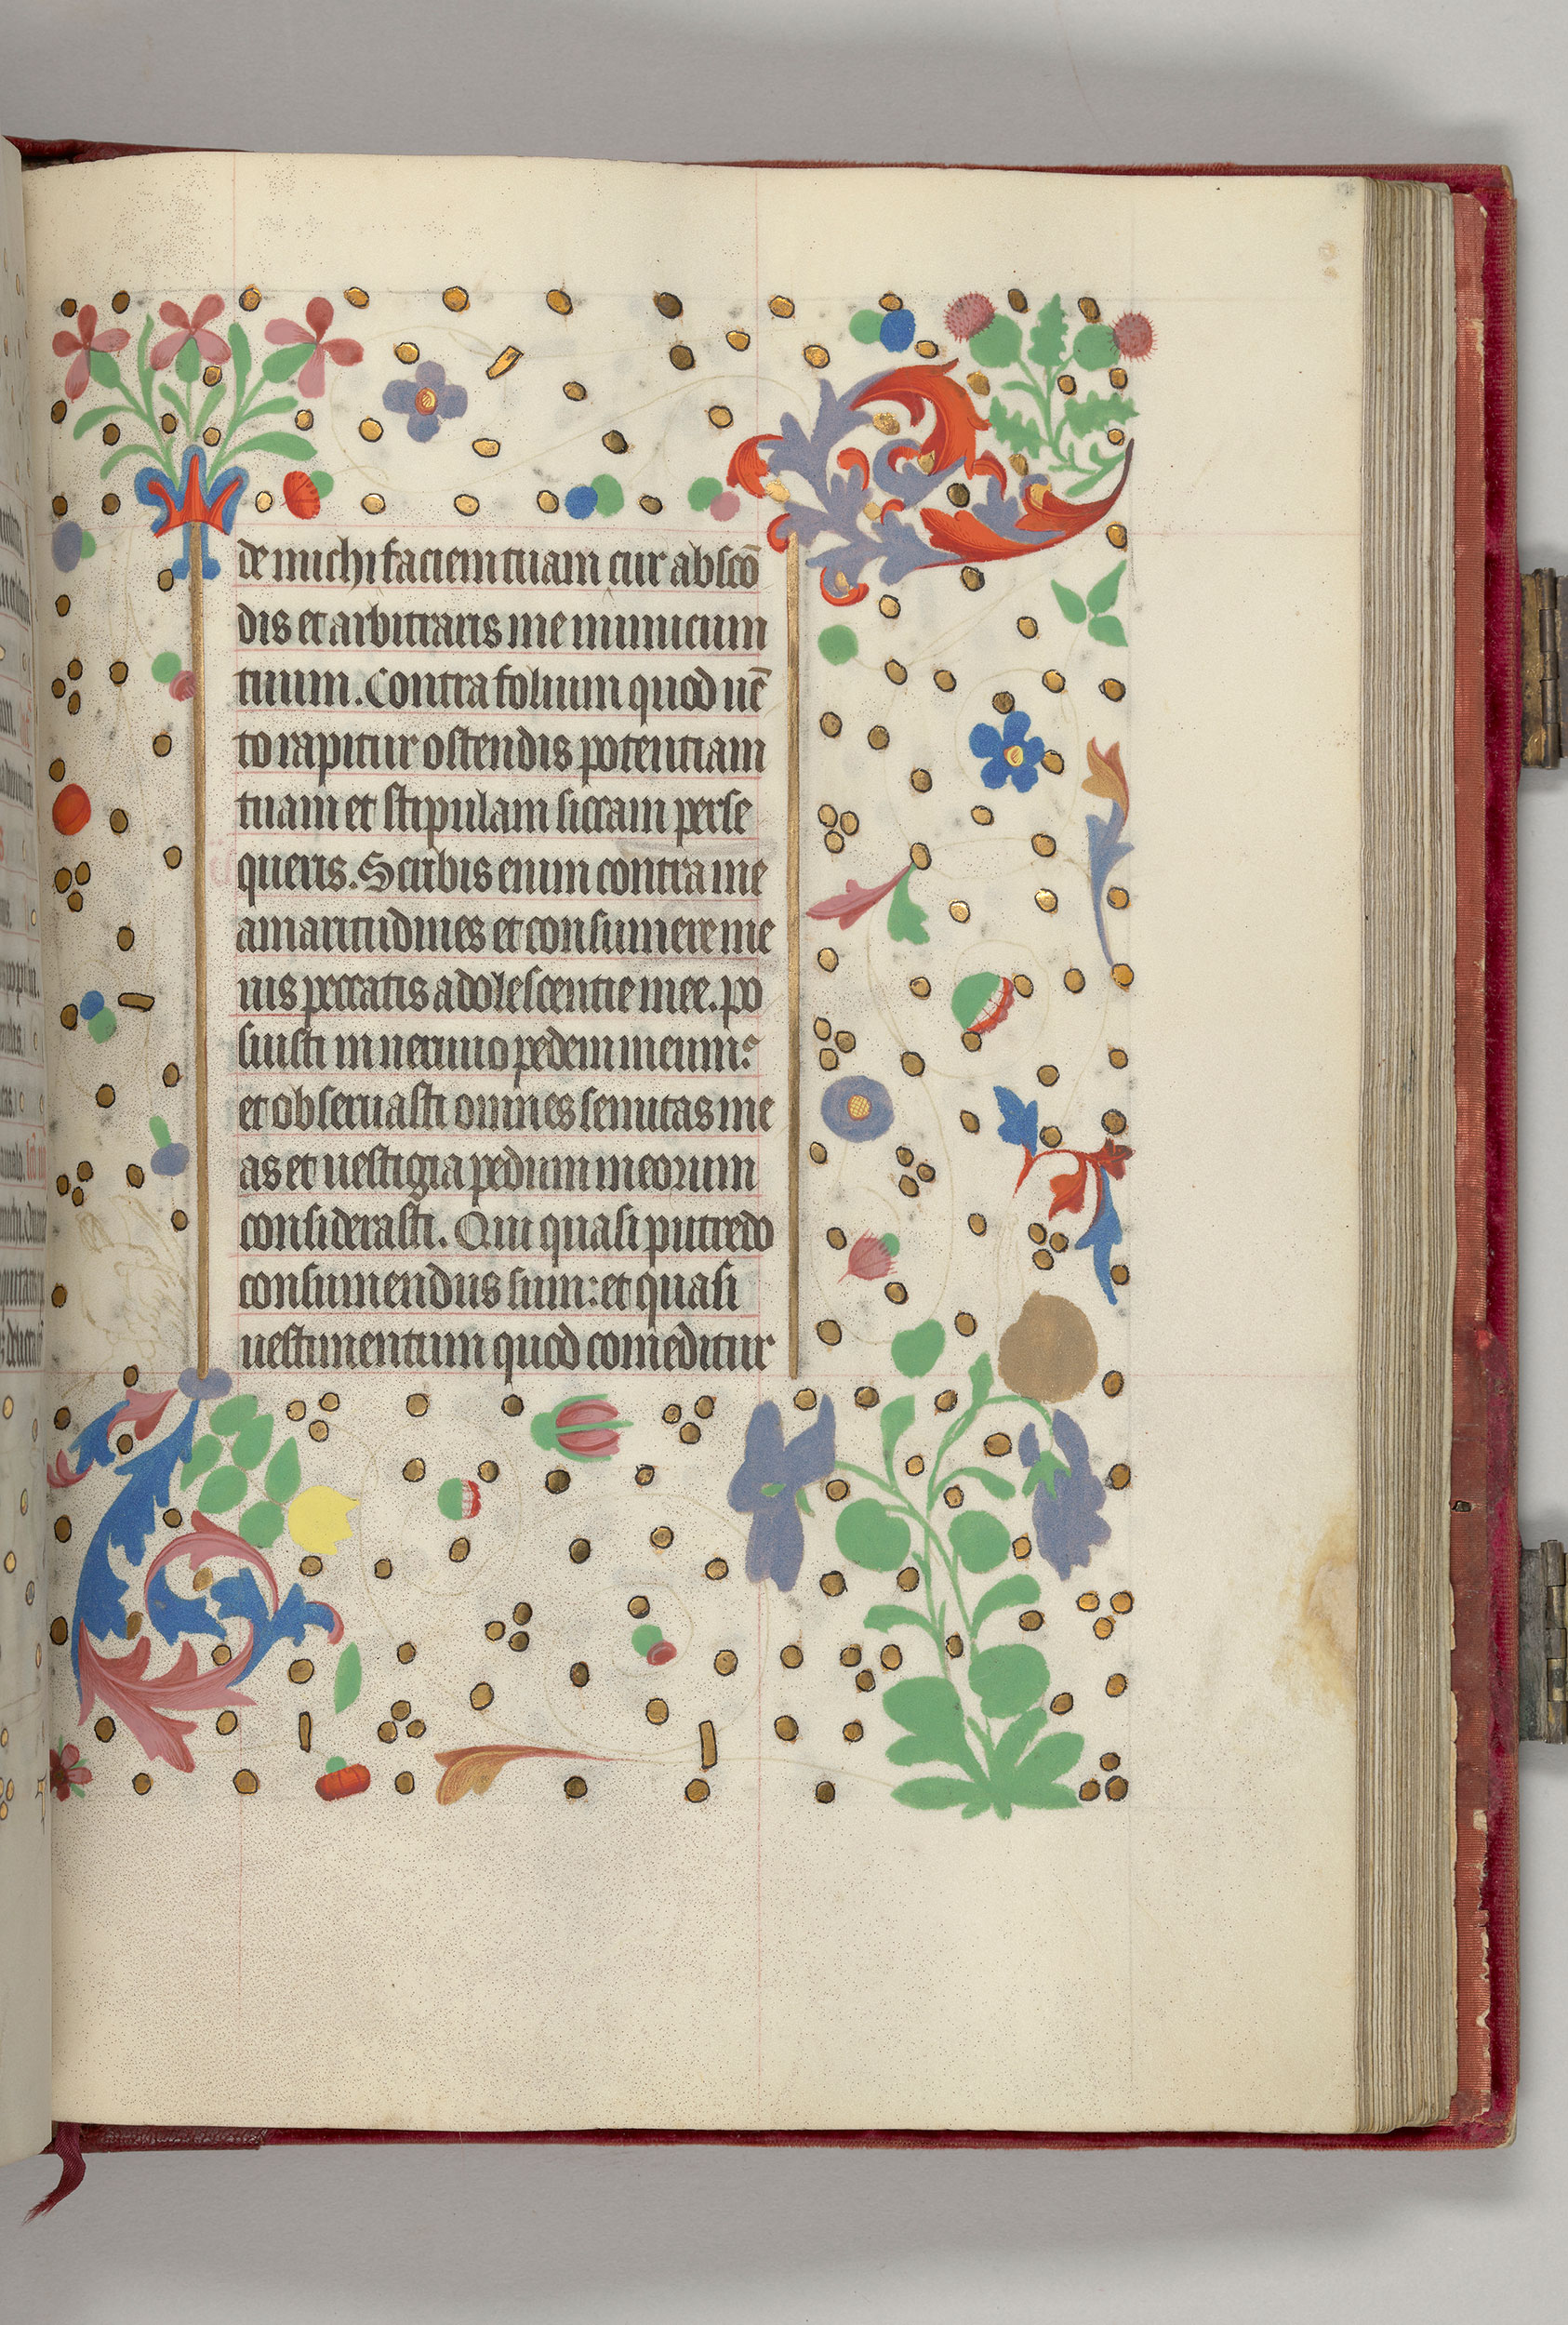 de michi faciem tuam cur abscō
dis et arbitraris me inimicum
tuum. Contra folium quod uē
to rapitur ostendis potentiam
tuam et stipulam siccam perse
queris. Scribis enim contra me
amaritudines et consumere me
uis peccatis adolescentie mee. po
suisti in neruo pedem meum:
et obseruasti omnes semitas me
as et uestigia pedum meorum
considerasti. Qui quasi putredo
consumendus sum: et quasi
uestimentum quod comeditur